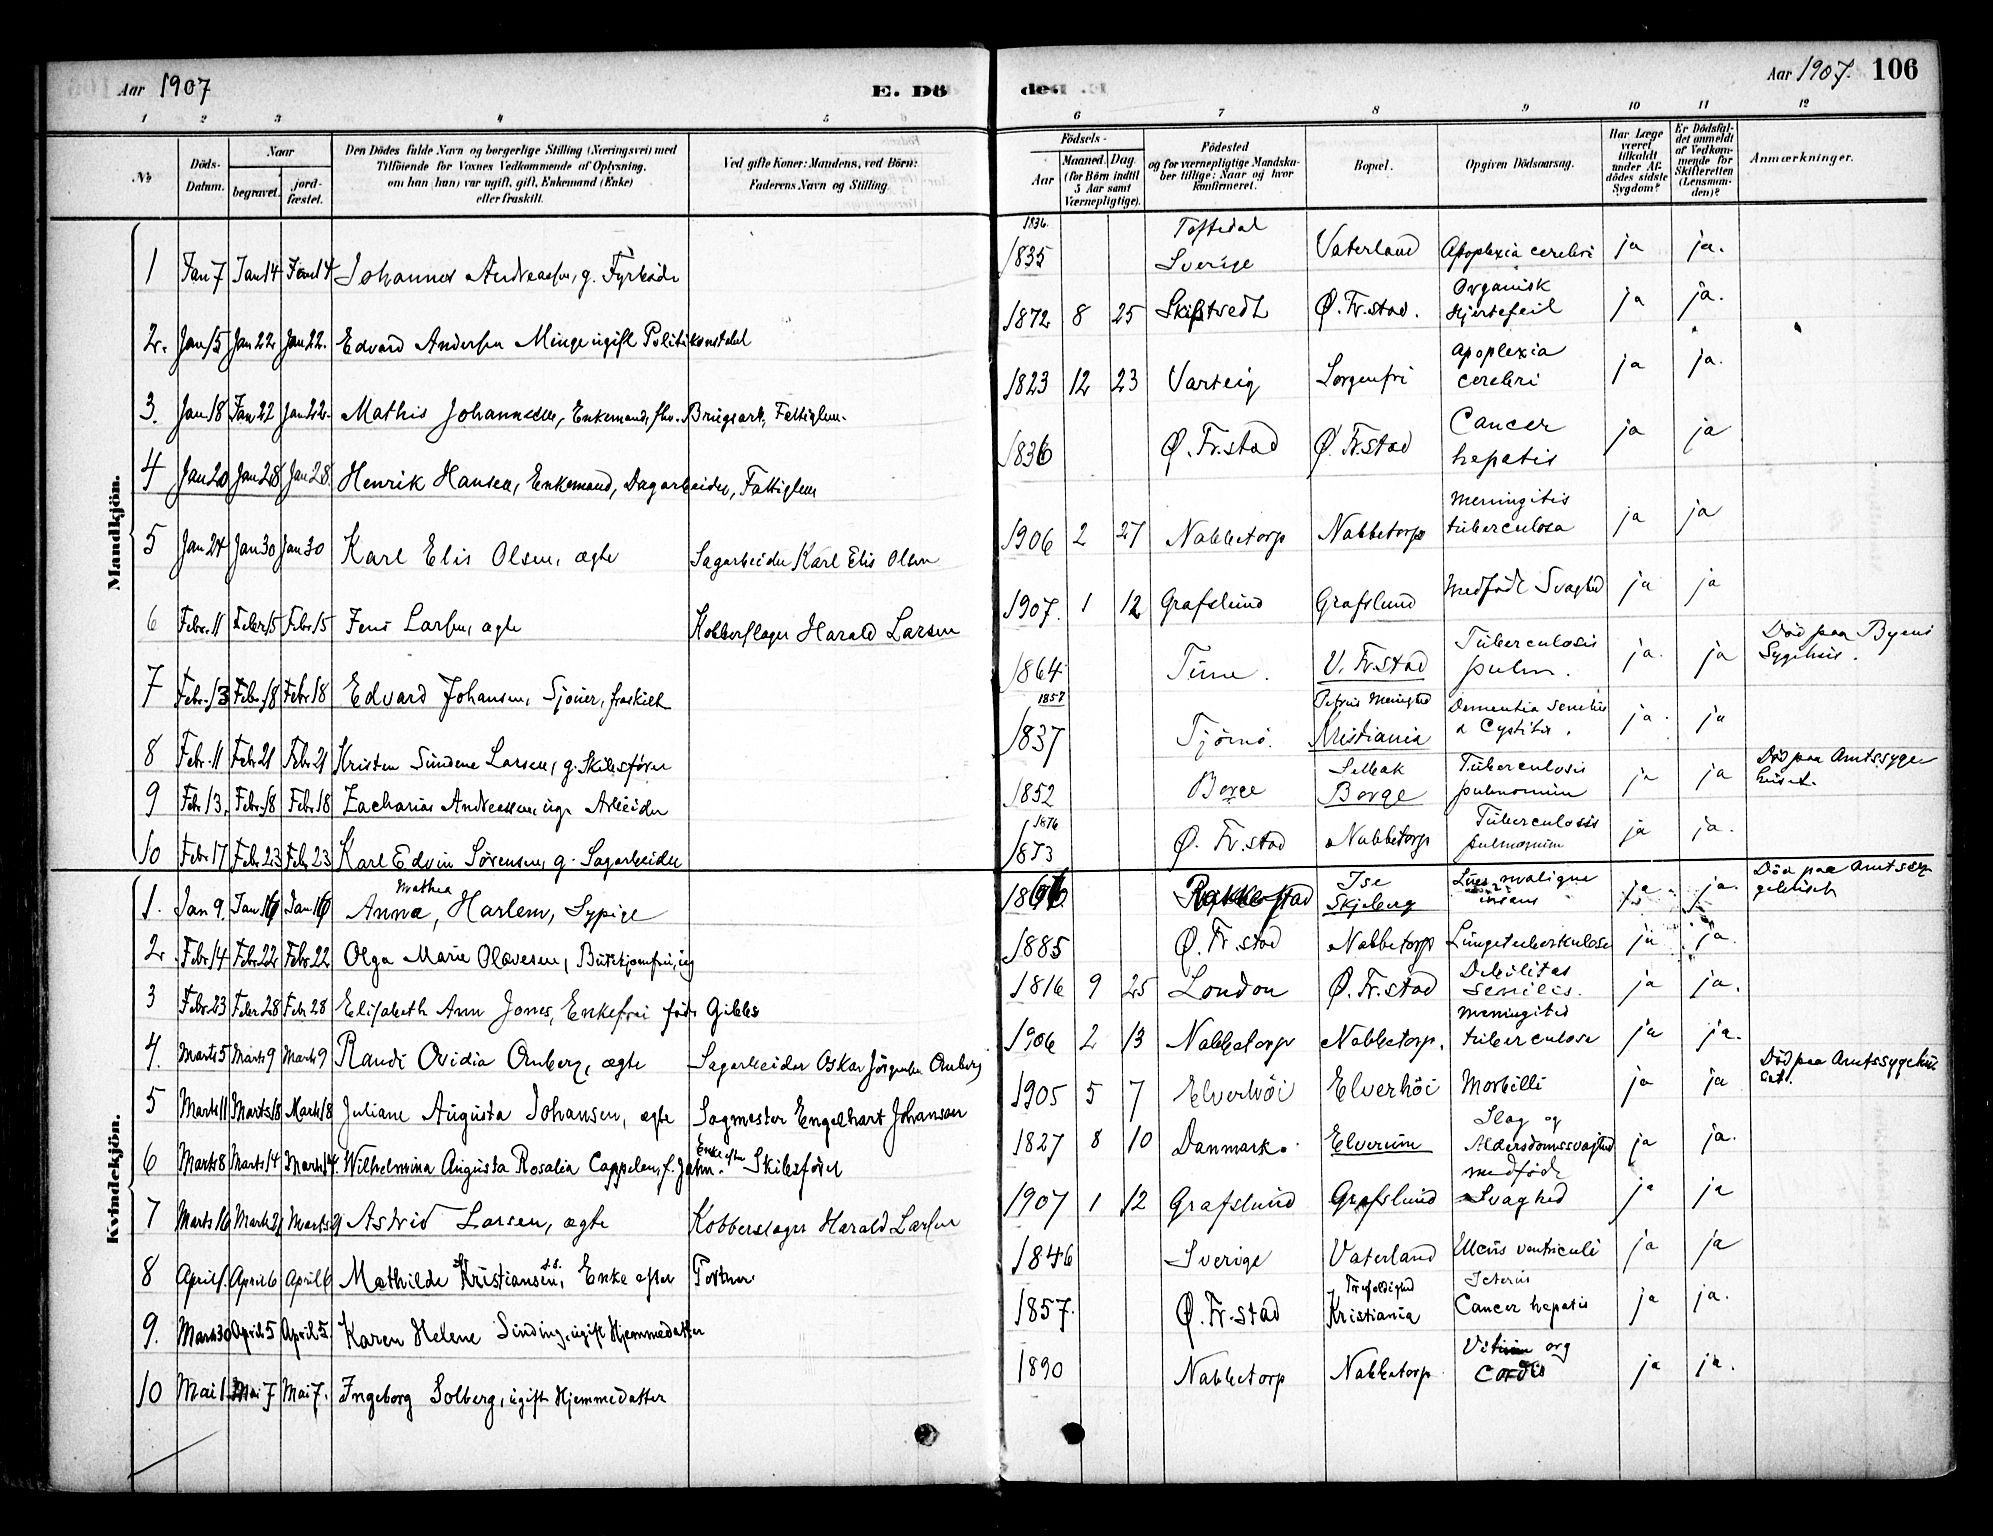 Aar 1907
E. Dö
1 2 3 4 5
№
Döds-Datum.
Naar
begravet.
jord-fæstet.
Den Dödes fulde Navn og borgerlige Stilling (Næringsvei) med
Tilföiende for Voxnes Vedkommende af Oplysning,
om han (hun) var ugift, gift, Enkemand (Enke)
eller fraskilt.
Ved gifte Koner: Mandens, ved Börn:
Faderens Navn og Stilling
Mandkjön.
1 Jan 7 Jan 14 Jan 14 Johannes Andreassen, g. Fyrbøder
2. Jan 15 Jan 22 Jan 22. Edvard Andersen Minge ugift Politikonstabel
3. Jan 18 Jan 22 Jan 22. Mathis Johannesen, Enkemand, fhv. Brugsarb., Fattiglem.
4 Jan 20 Jan 28 Jan 28 Henrik Hansen, Enkemand, Dagarbeider, Fattiglem
5 Jan 24 Jan 30 Jan 30 Karl Elis Olsen, ægte Sagarbeider Karl Elis Olsen
6 Febr. 11 Febr 15 Febr 15 Jens Larsen, ægte Kobberslager Harald Larsen
7 Febr. 13 Febr 18 Febr 18 Edvard Johansen, Sjöuer, fraskilt
8 Febr. 11 Febr 21 Febr 21 Kristen Sundene Larsen, g. Skibsförer
9 Febr 13. Febr. 18 Febr 18 Zacharias Andreassen, ug. Arbeider
10 Febr 17 Febr 23 Febr 23 Karl Edvin Sörensen, g. Sagarbeider
Kvindekjön.
1. Jan 9 Jan 16 Jan 16 Anna Mathea, Harlem, Sypige
2. Febr 14 Febr 22 Febr 22 Olga Marie Olavesen, Butikjomfru, ug
3 Febr. 23 Febr 28 Febr 28 Elisabeth Ann Jones, Enkefrue föd Gibbs
4. Marts 5 Marts 9 Marts 9 Randi Ovidia Ornberg, ægte Sagarbeider Oskar Jörgensen Ornberg
5 Marts 11 Marts 18 Marts 18 Juliane Augusta Johansen, ægte Sagmester Engelhart Johansen
6 Marts 8 Marts 14 Marts 14. Wilhelmina Augusta Rosalia Cappelen, f. Jahn. Enke efter Skibsförer
7 Marts 16 Marts 21 Marts 21 Astrid Larsen, ægte Kobberslager Harald Larsen
8 April 1. April 6 April 6 Mathilde Kristiansen, Enke efter Portner
9. Marts 30 April 5 April 5. Karen Helene Sinding, ugift Hjemmedatter
10 Mai 1 Mai 7 Mai 7. Ingeborg Solberg, ugift Hjemmedatter
död
Aar 1907. 106
6 7 8 9 10 11 12
Födsels-
Aar
Maaned Dag
(for Börn indtil
5 Aar samt
Værnepligtige).
Födested
og for værnepligtige Mandska-
ber tillige: Naar og hvor
konfirmeret.
Bopæl.
Opgiven Dödsaarsag.
Har Læge
været
tilkaldt
under Af-
dödes sidste
Sygdom?
Er Dödsfal-
det anmeldt
af Vedkom-
mende for
Skifteretten
(Lensman-
den)?
Anmærkninger.
1836 1835 Töftedal Sverige Vaterland Apoplexia cerebri ja ja.
1872 8 25 Skiptvedt Ø. Fr.stad. Organisk Hjertefeil ja ja.
1823 12 23 Varteig Sorgenfri Apoplexia cerebri ja ja.
1836 Ø. Fr.stad Ø. Fr.stad Cancer hepatis ja ja
1906 2 27 Nabbetorp Nabbetorp Meningitis tuberculosa ja ja
1907. 1 12 Grafslund Grafslund Medfödt Svaghed ja ja
1864 Tune. V. Fr.stad Tuberculosis pulm. ja. ja Död paa Byens Sygehus.
1857 1837 Tjömö. Petrus Menighed Kristiania Dementia senilis & Cystitis. ja. ja
1852 Borge Selbak Borge Tuberculosis pulmonum ja ja Död paa Amtssygehuset.
1876 1873 Ø. Fr.stad Nabbetorp Tuberculosis pulmonum ja ja.
1866 Rakkestad Ise Skjeberg Lues maligna ja ja. Död paa Amtssygehuset
1885 Ø. Fr.stad Nabbetorp Lungetuberkulose ja ja.
1816 9 25 London Ø. Fr.stad Debilitas senilis. ja ja.
1906 2 13 Nabbetorp Nabbetorp. Meningitis tuberculosa ja ja.
1905 5 7 Elverhöi Elverhöi Morbilli ja ja Död paa Amtssygehuset.
1827 8 10 Danmark. Elverum Slag og Alderdomssvaghed ja ja.
1907 1 12 Grafslund Grafslund medfödt Svaghed ja ja
1846 Sverige Vaterland Ulcus ventriculi ja ja
1857. Ø. Fr.stad Trefoldighed Kristiania Icterus Cancer hepatis ja ja.
1890 Nabbetorp Nabbetorp Vitium org Cordis ja ja.